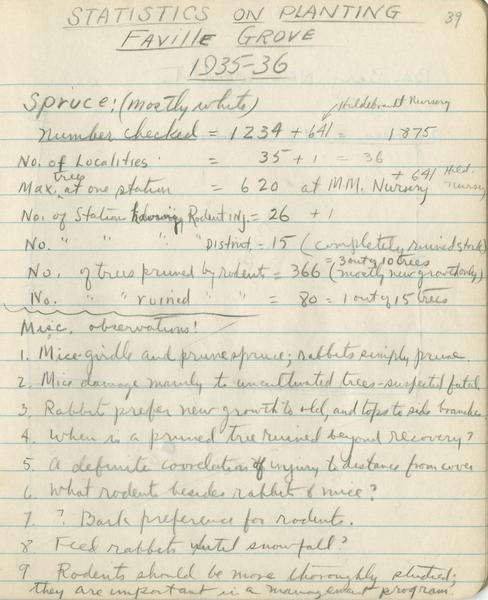 STATISTICS ON PLANTING 39
FAVILLE GROVE
1935-36
Spruce: (mostly white) Hildebrandt Nursery
Number checked = 1234 + 641 = 1875
No. of Localities = 35 + 1 = 36
Max. trees at one station = 620 at M.M. Nursery + 641 Hild. Nursery
No. of Stations showing Rodent Inj. = 26 + 1
No. " " " " District. = 15 (completely ruined stock)
= 3 out of 10 trees
No. of trees pruned by rodents = 366 (mostly new growth only)
No. " " ruined " " = 80 = 1 out of 15 trees
Misc. observations:
1. Mice girdle and prune spruce; rabbits simply prune.
2. Mice damage mainly to uncultivated trees - suspected fatal
3. Rabbits prefer new growth to old, and tops to side branches.
4. When is a pruned tree ruined beyond recovery?
5. A definite correlation of injury to distance from cover
6. What rodents besides rabbits & mice?
7. ? Bark preference for rodents.
8. Feed rabbits until snowfall?
9. Rodents should be more thoroughly studied;
they are important in a management program.